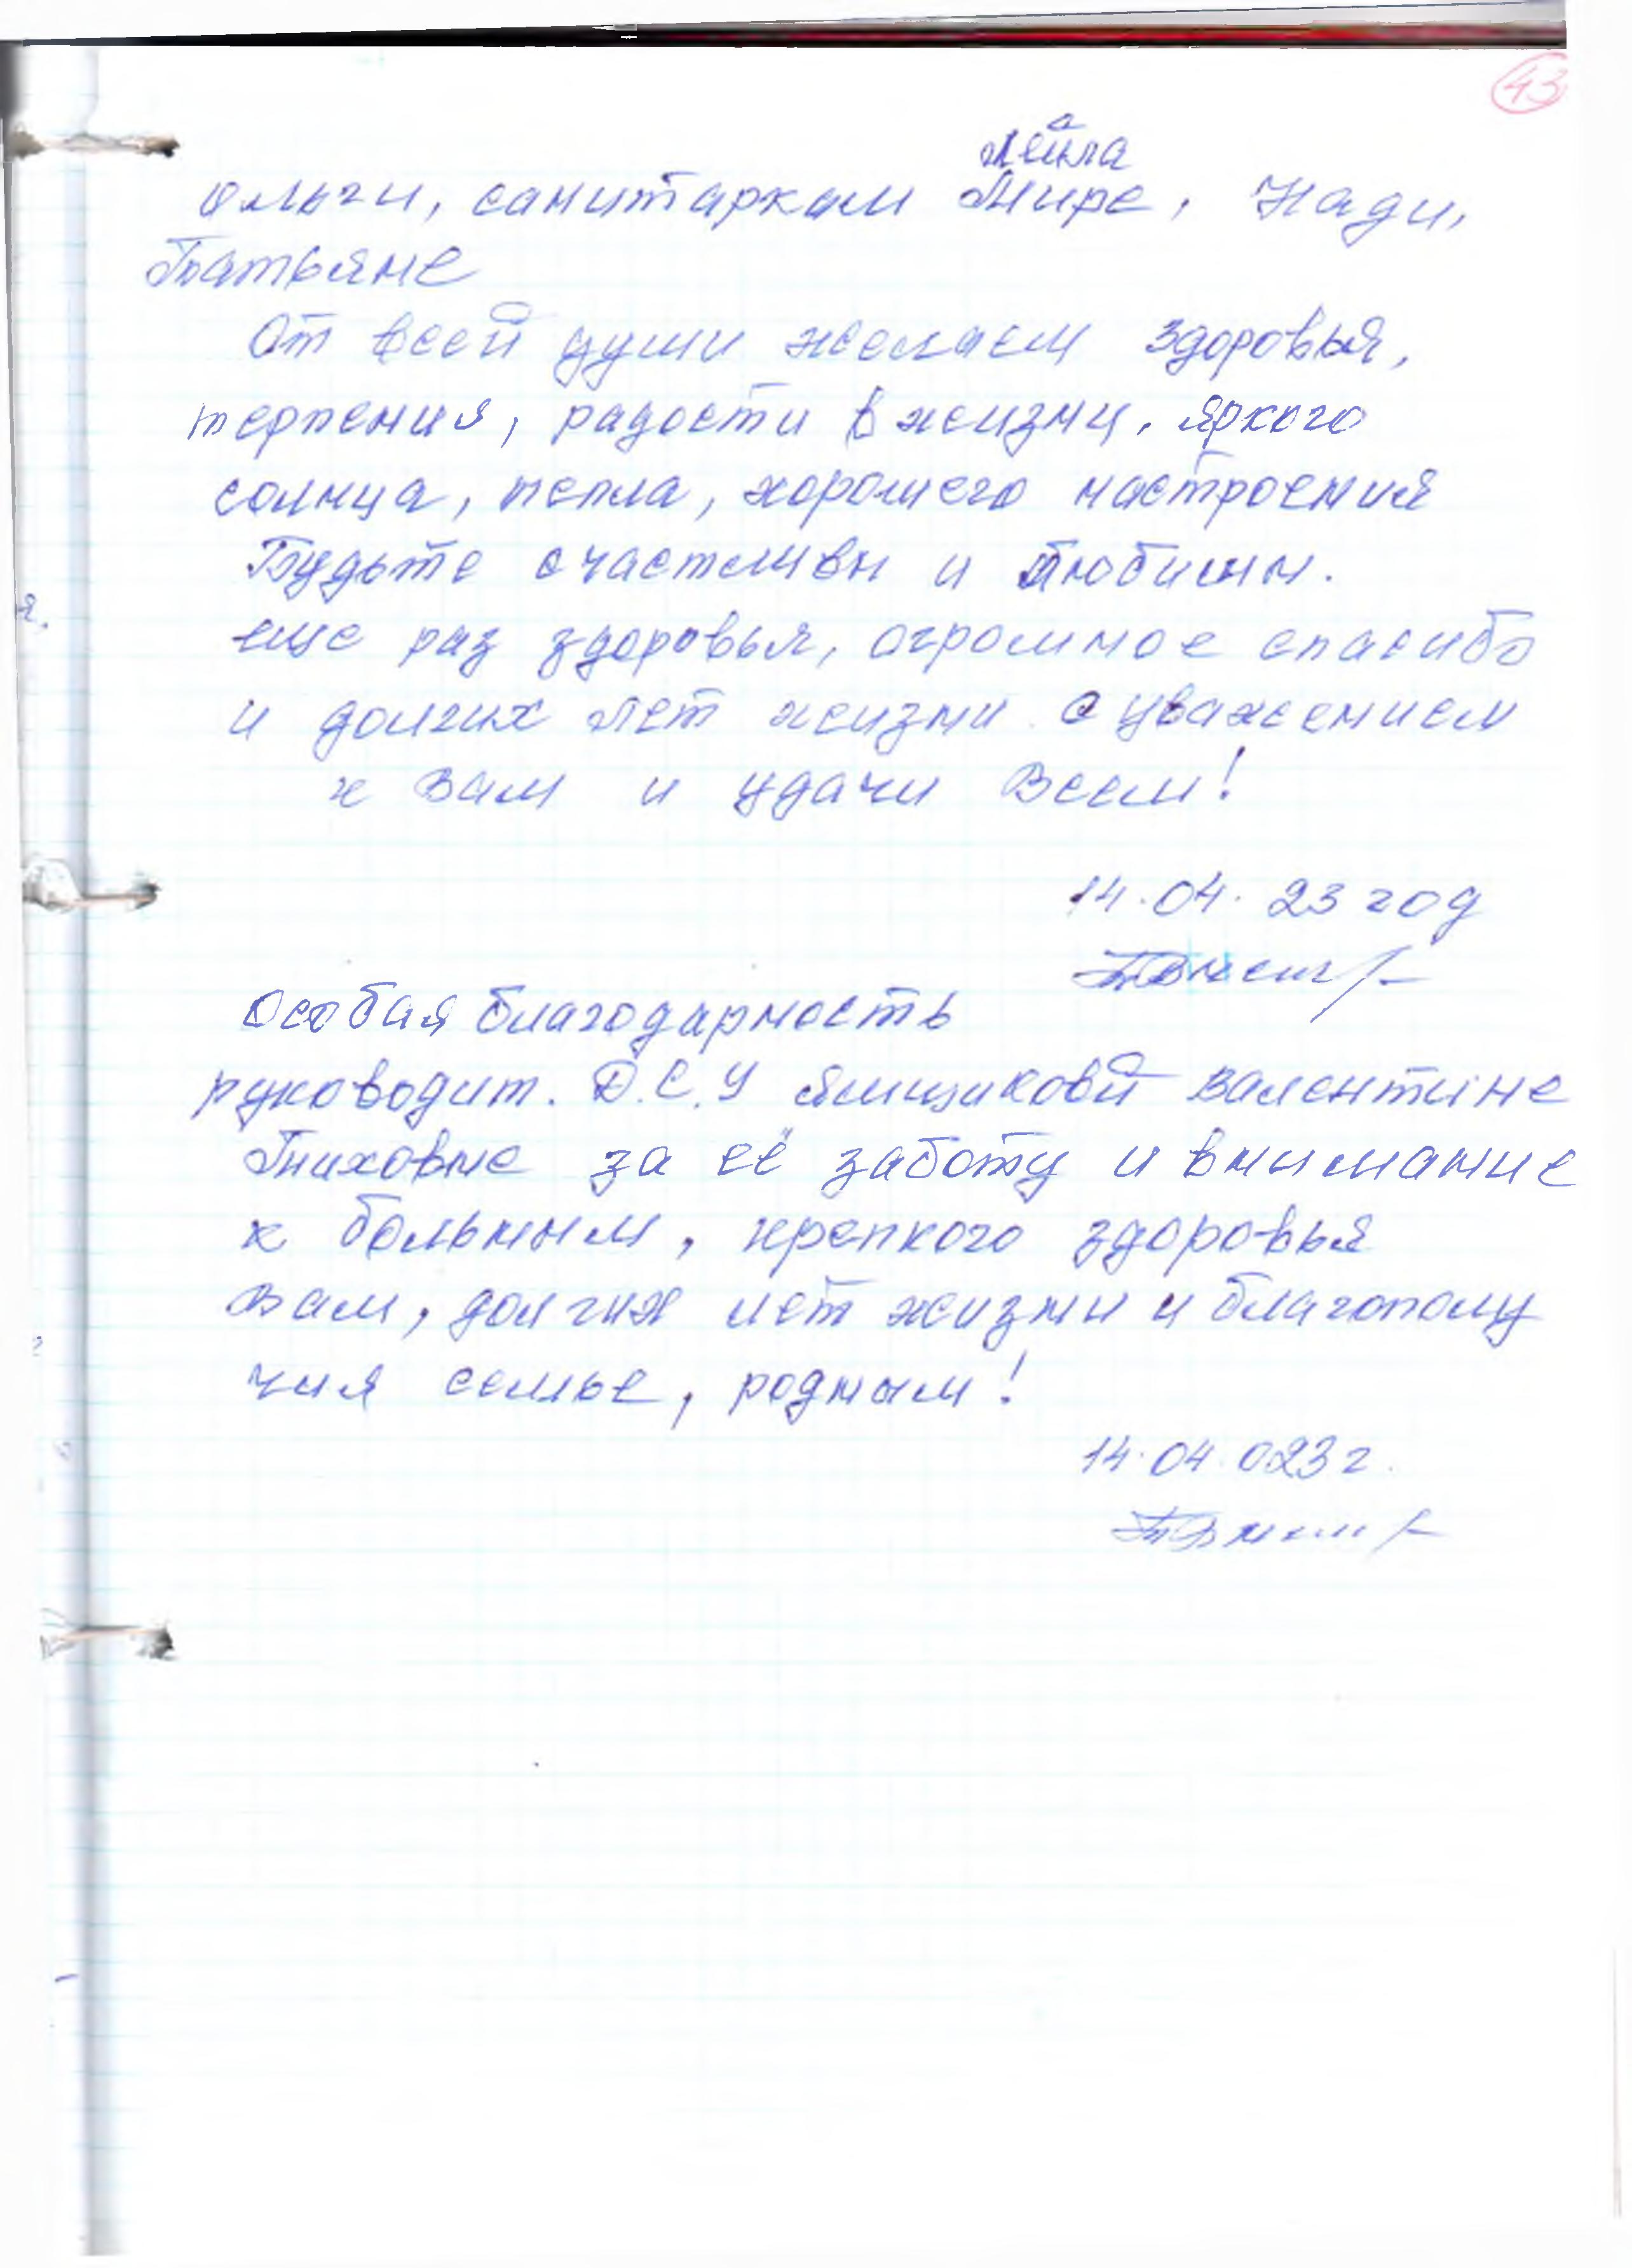 43
Лейла
Ольги, санитаркам Мире, Нади,
Татьяне
От всей души желаем здоровья,
терпения, радости в жизни, яркого
солнца, тепла, хорошего настроения
Будьте счастливы и любимы.
еще раз здоровья, огромное спасибо
и долгих лет жизни с уважением
к вам и удачи Всем!
14.04.23 год
Особая благодарность
руководит. Д.С.У Ямщиковой Валентине
Тиховне за её заботу и внимание
к больным, крепкого здоровья
Вам, долгих лет жизни и благополу
чия семье, родным!
14.04.023г.